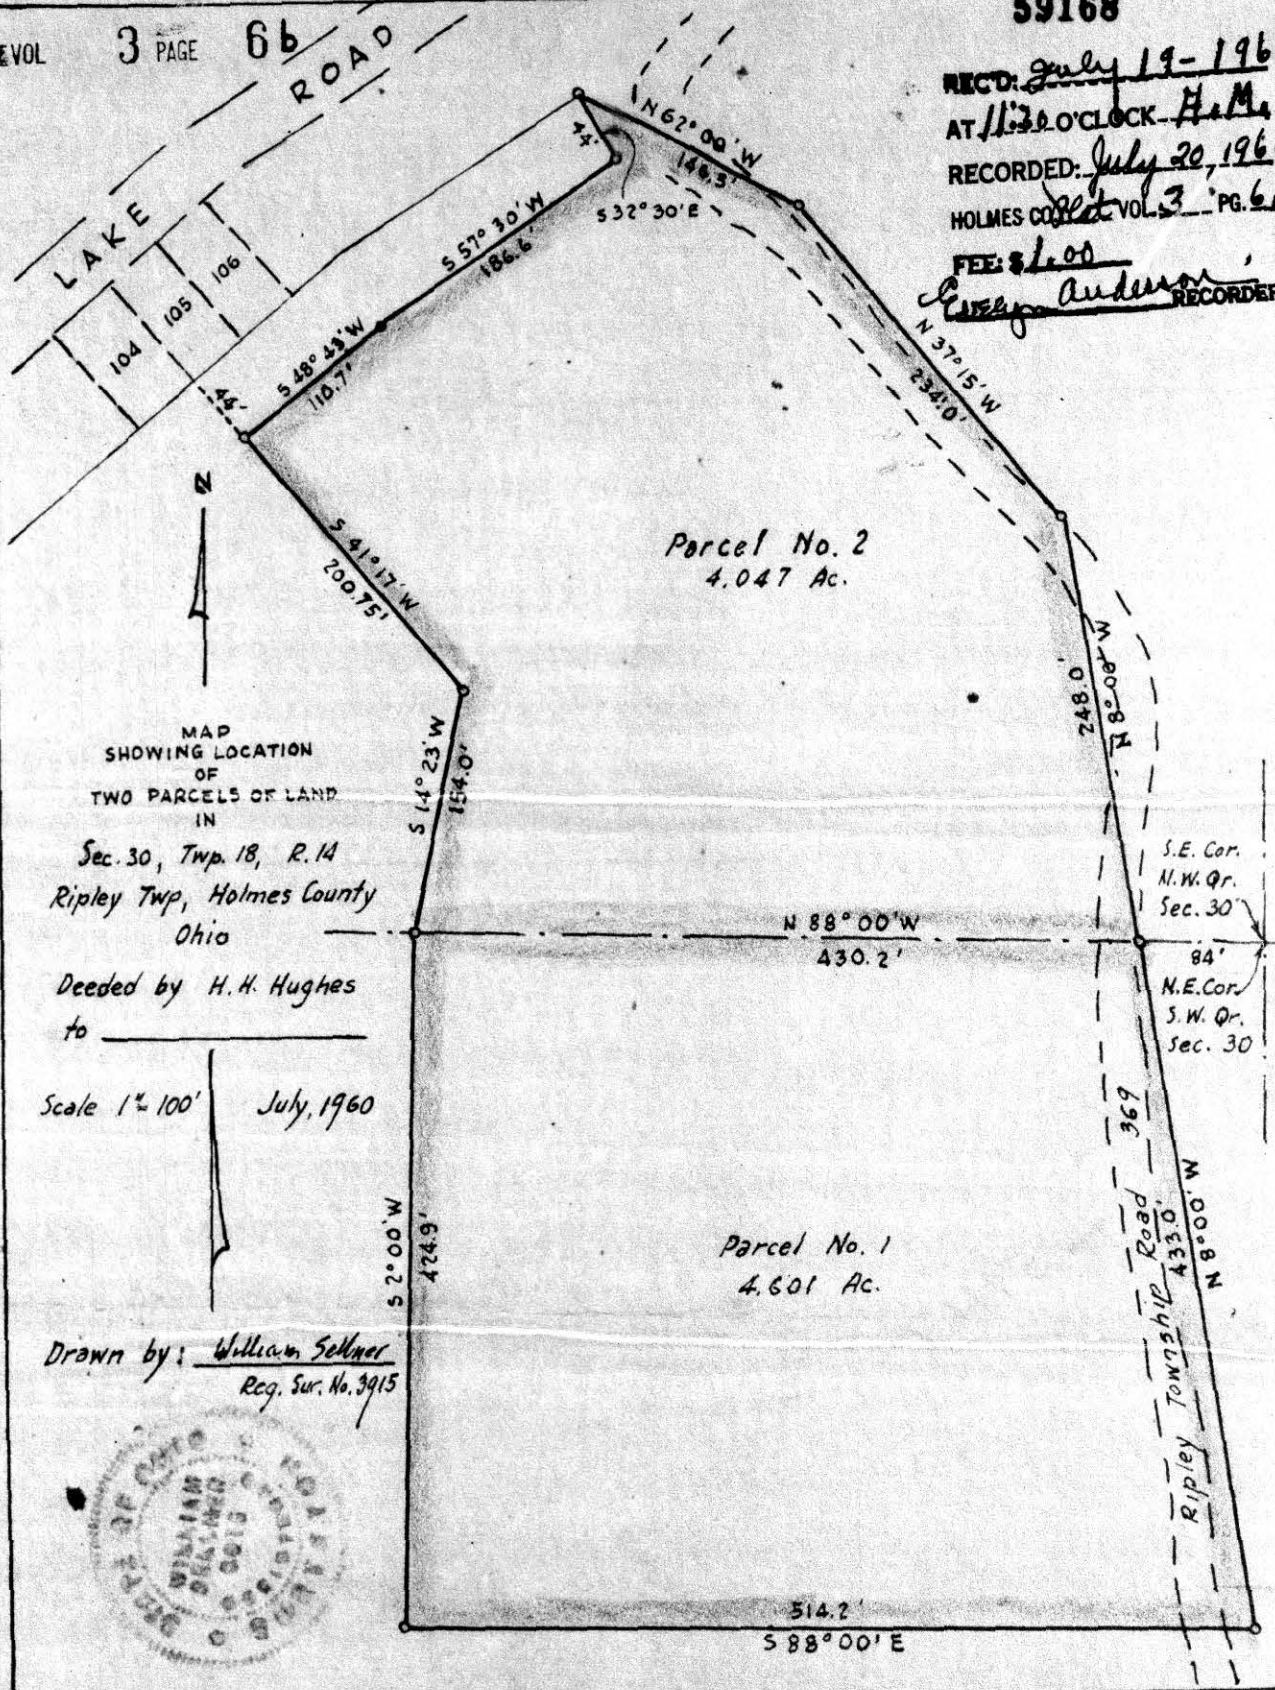 VOL 3 PAGE 6b
59168
REC'D: July 19-196
AT 11:30 O'CLOCK A.M.
RECORDED: July 20, 196
HOLMES CO Plat VOL. 3 PG. 6
FEE: $1.00
Evelyn Anderson RECORDER
LAKE ROAD
104
105
106
44'
44'
N 62° 00' W
146.5'
S 32° 30' E
S 57° 30' W
186.6'
S 48° 43' W
110.7'
N 37° 15' W
234.0'
S 41° 17' W
200.75'
N
Parcel No. 2
4.047 Ac.
248.0'
N 8° 00' W
S 14° 23' W
154.0'
MAP
SHOWING LOCATION
OF
TWO PARCELS OF LAND
IN
Sec. 30, Twp. 18, R. 14
Ripley Twp, Holmes County
Ohio
Deeded by H. H. Hughes
to
Scale 1" = 100' July, 1960
N 88° 00' W
430.2'
S.E. Cor.
N.W. Qr.
Sec. 30
84'
N.E. Cor.
S.W. Qr.
Sec. 30
S 2° 00' W
424.9'
Parcel No. 1
4.601 Ac.
Ripley Township Road 369
433.0'
N 8° 00' W
Drawn by: William Sellner
Reg. Sur. No. 3915
514.2'
S 88° 00' E